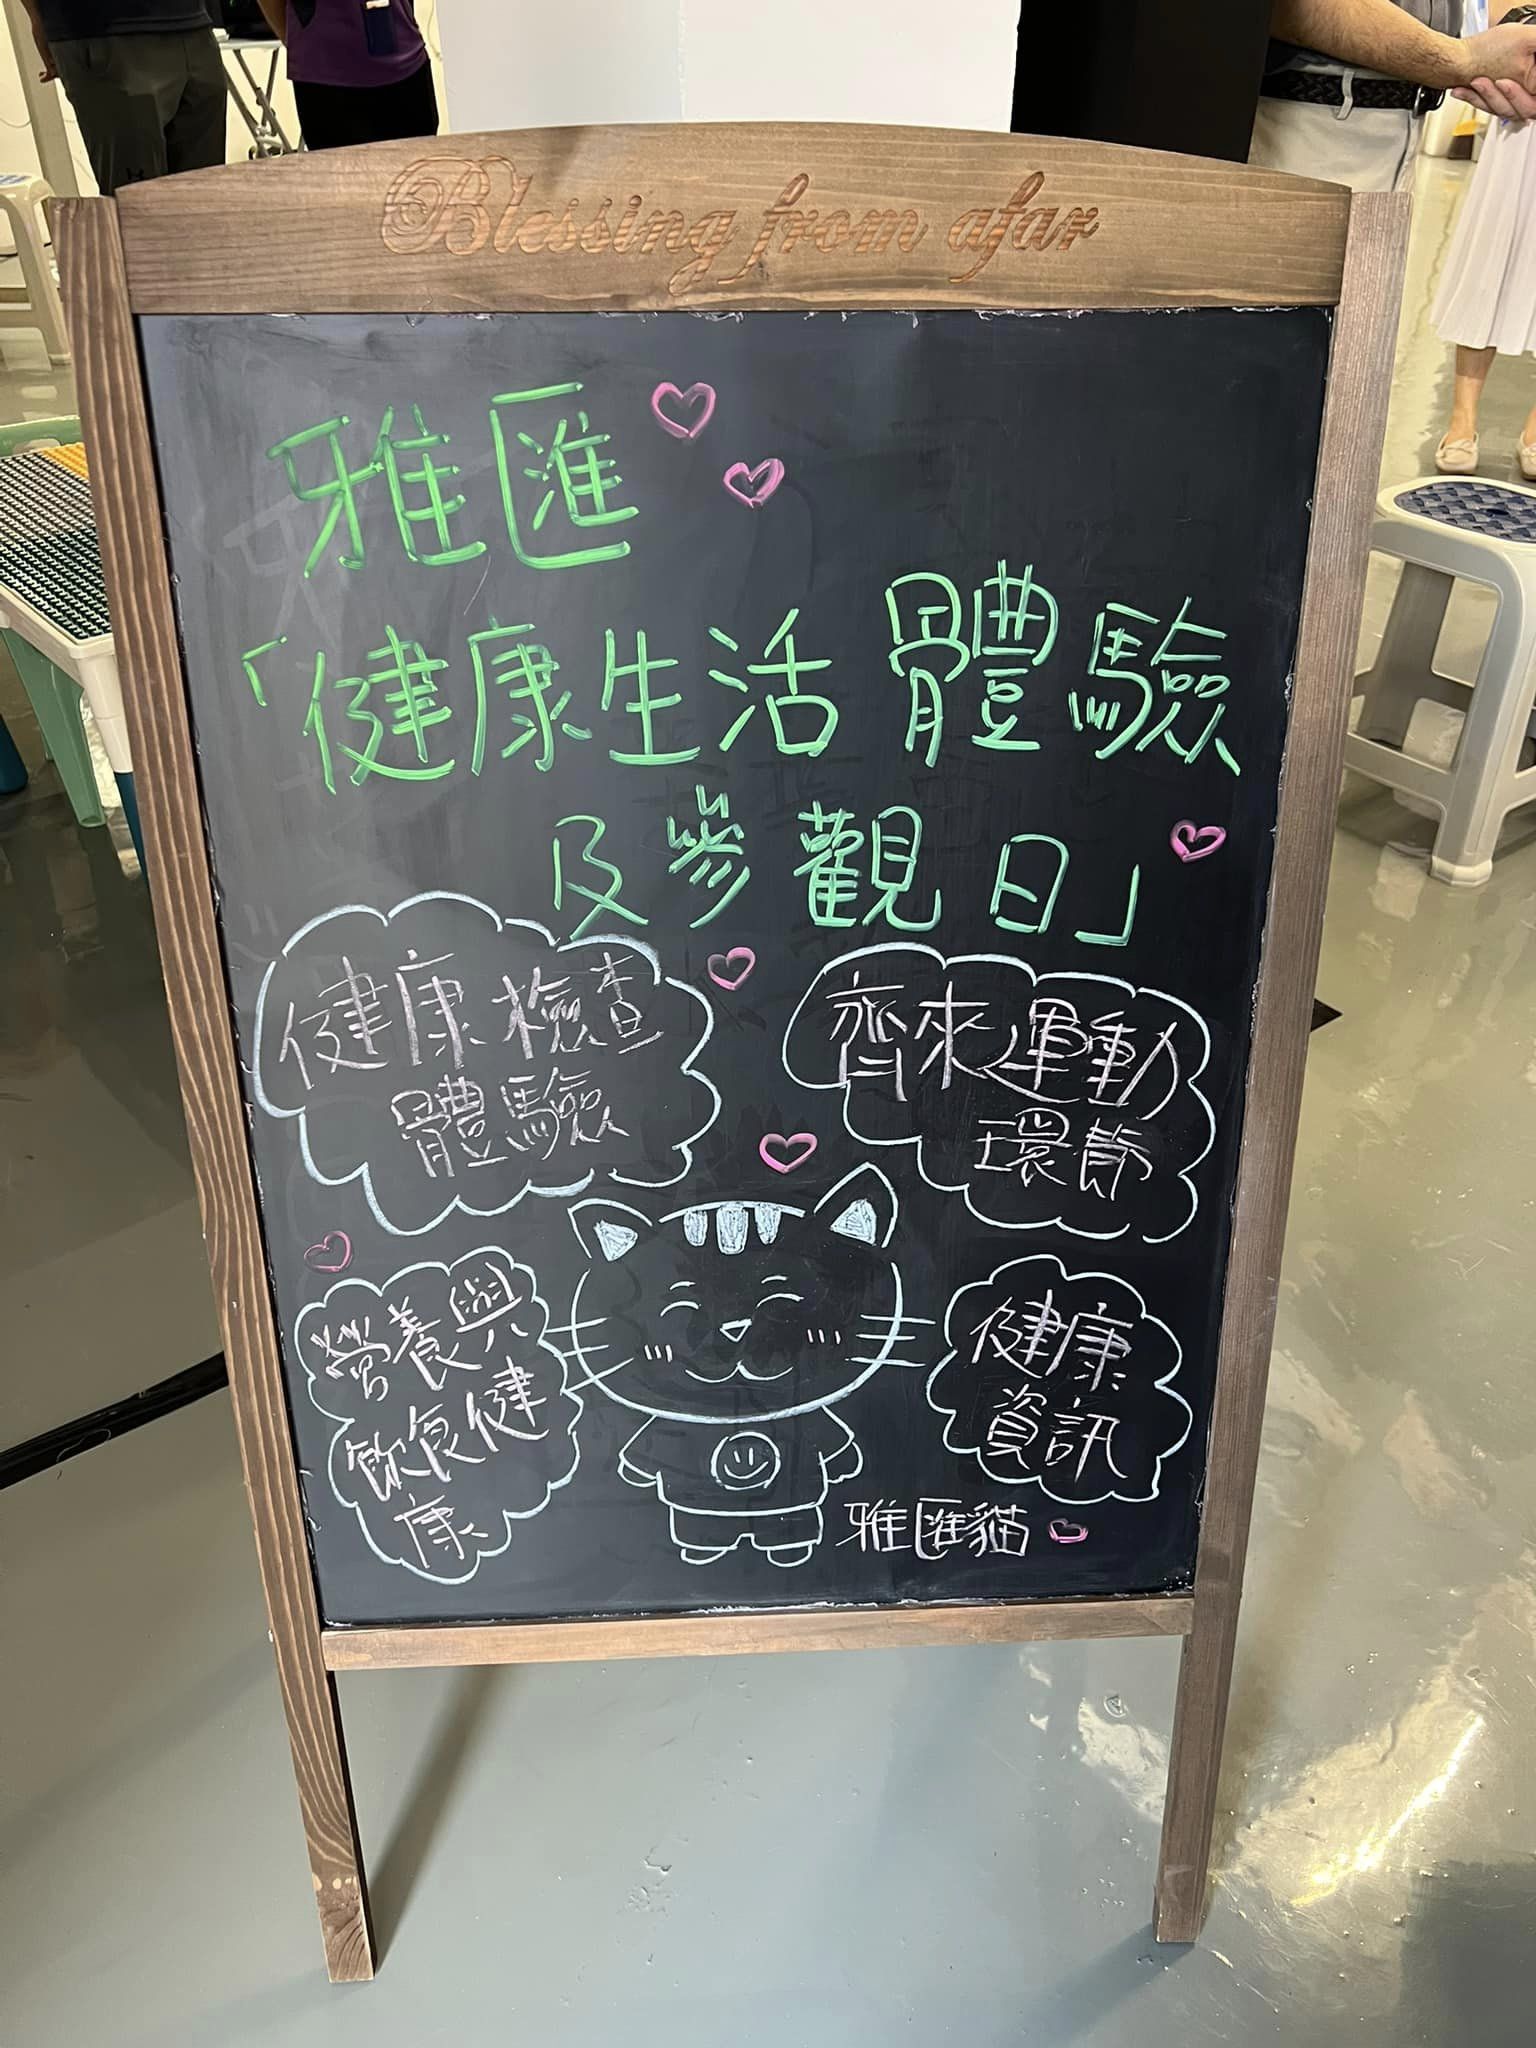 Blessing from afar
雅匯
「健康生活體驗
及參觀日」
健康檢查
體驗
齊來運動
環節
營養與
飲食健
康
健康
資訊
雅匯貓